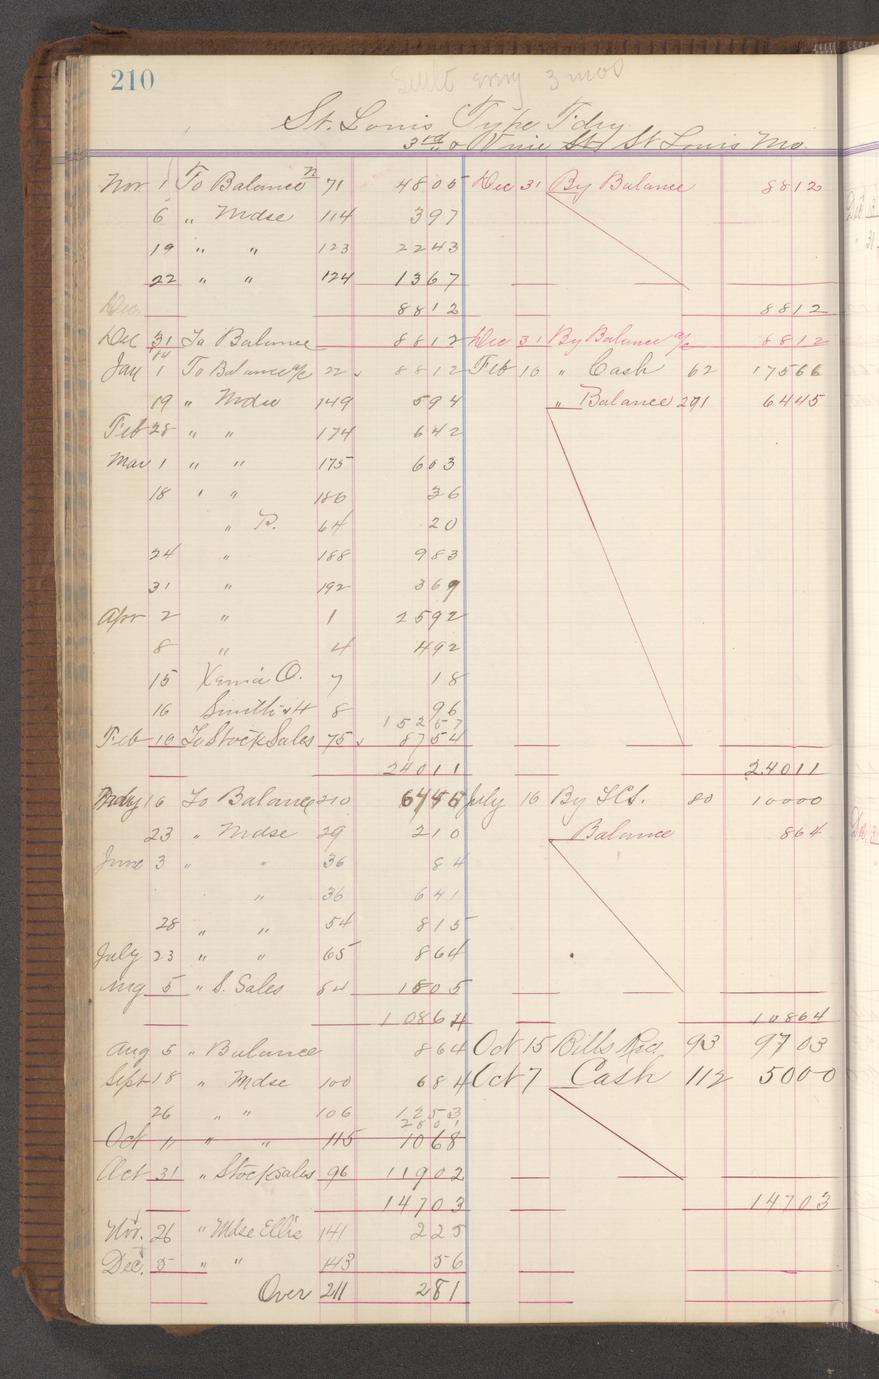 210
Settle every 3 mos
St. Louis Type Fdry
3rd & Vine Sts St Louis Mo.
Nov 1 To Balance 71 4805 Dec 31 By Balance 8812
6 " Mdse 114 397
19 " " 123 2243
22 " " 124 1367
Dec 8812 8812
Dec 31 To Balance 8812 Dec 31 By Balance a/c 8812
Jan 1 To Balance a/c 22 8812 Feb 10 " Cash 62 17566
19 " Mdse 149 594 " Balance 291 6445
Feb 28 " " 174 642
Mar 1 " " 175 603
18 " " 186 36
" P. 64 20
24 " 188 983
31 " 192 369
Apr 2 " 1 2592
8 " 4 492
15 Xenia O. 7 18
16 Smith & H 8 96
15257
Feb 10 To Stock Sales 75 8754
24011 24011
May 16 To Balance 210 6445 July 16 By 80 10000
23 " Mdse 29 210 Balance 864
June 3 " " 36 84
" 36 641
28 " " 54 815
July 23 " " 65 864
Aug 5 " S. Sales 84 1805
10864 10864
Aug 5 " Balance 864 Oct 15 Bills Rec 93 9703
Sept 18 " Mdse 100 684 Oct 7 Cash 112 5000
26 " " 106 1253
2801
Oct 11 " " 115 1068
Oct 31 " Stock sales 96 11902
14703 14703
Nov. 26 " Mdse Ellis 141 225
Dec. 5 " " 143 56
Over 211 281